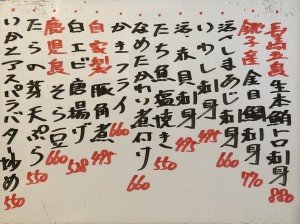 長崎五島 生本鮪トロ刺身 880
銚子産 金目鯛刺身 770
活〆しまあじ刺身 660
いわし刺身 495
活赤貝刺身 495
たち魚塩焼き 550
なめたかれい煮付け 660
かきフライ
自家製 豚角煮 495
白エビ唐揚げ 528
鹿児島 そら豆 660
たらの芽天ぷら 550
いかとアスパラバター炒め 550